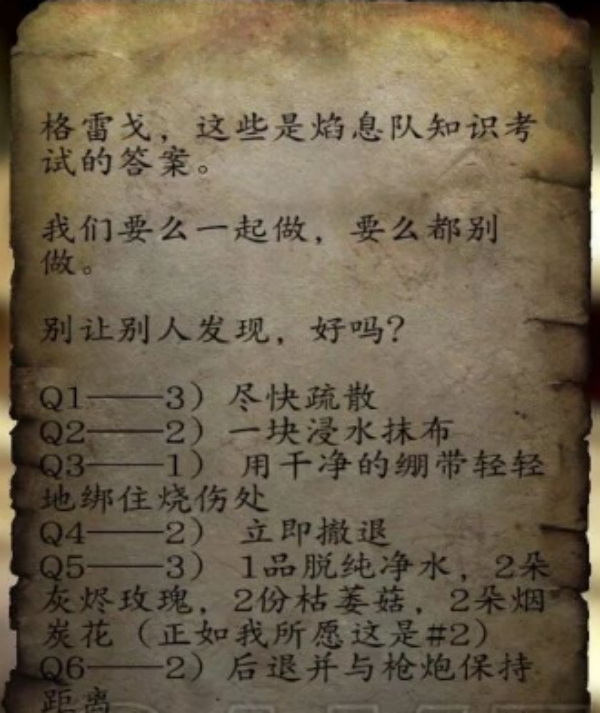 格雷戈，这些是焰息队知识考
试的答案。
我们要么一起做，要么都别
做。
别让别人发现，好吗？
Q1——3）尽快疏散
Q2——2）一块浸水抹布
Q3——1） 用干净的绷带轻轻
地绑住烧伤处
Q4——2） 立即撤退
Q5——3） 1品脱纯净水，2朵
灰烬玫瑰，2份枯萎菇，2朵烟
炭花（正如我所愿这是#2）
Q6——2）后退并与枪炮保持
距离